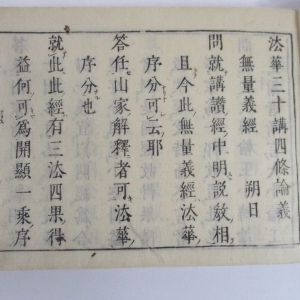 法華三十講四條論義
無量義經　朔日
問就講讚經中明説教相
且今此無量義經法華
序分可云耶
答任山家解釋者可法華
序分也
就此此經有三法四果得
益何可爲開顯一乘序